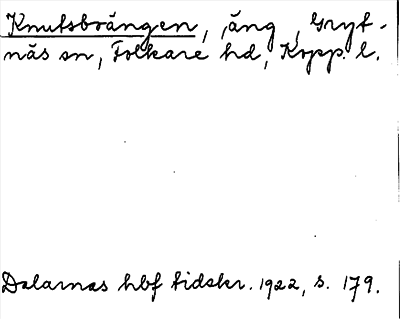 Knutsboängen, äng, Gryt-
näs sn, Folkare hd, Kopp. l.
Dalarnas hbf tidskr. 1922, s. 179.